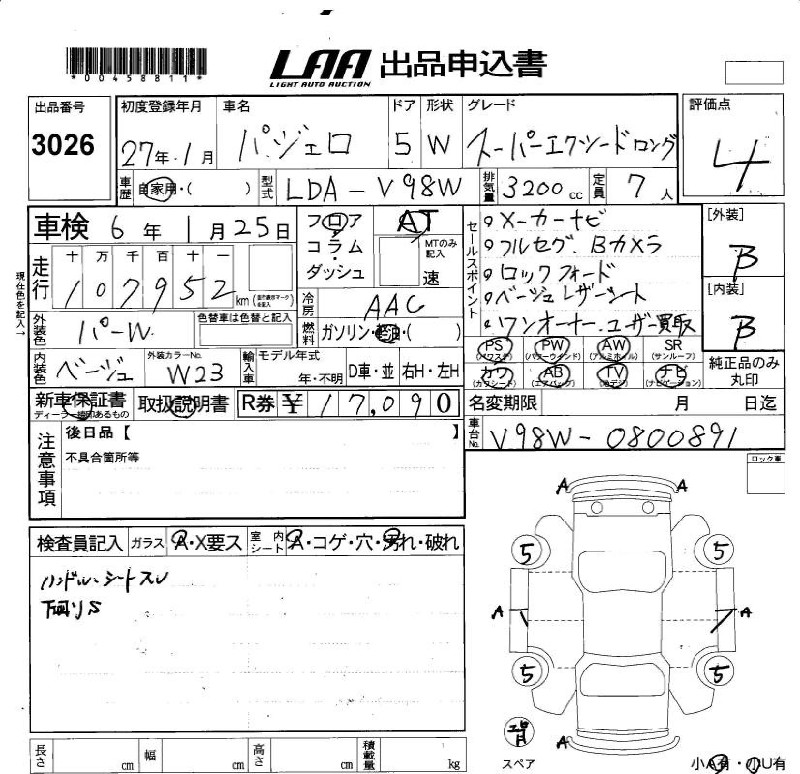 *00458811*
LAA 出品申込書
LIGHT AUTO AUCTION
出品番号 3026
初度登録年月 27年1月
車名 パジェロ
ドア 5
形状 W
グレード スーパーエクシードロング
評価点 4
車歴 自家用・( )
型式 LDA-V98W
排気量 3200cc
定員 7人
車検 6年1月25日
フロア
コラム・
ダッシュ
AT
MTのみ記入
速
セールスポイント
メーカーナビ
フルセグ.Bカメラ
ロックフォード
ベージュレザーシート
ワンオーナー.ユーザー買取
[外装] B
[内装] B
現在色を記入→
走行 十 万 千 百 十 一
107952 km
冷房 AAC
燃料 ガソリン・軽油・( )
外装色 パーW.
色替車は色替と記入
内装色 ベージュ
外装カラーNo. W23
輸入車 モデル年式 年・不明
D車・並 右H・左H
PS (パワステ) PW (パワーウインド) AW (アルミホイル) SR (サンルーフ)
カワ (カワシート) AB (エアバッグ) TV (地デジ) ナビ (ナビゲーション)
純正品のみ丸印
新車保証書
ディーラー捺印あるもの
取扱説明書
R券 ¥17,090
名変期限 月 日迄
車台No. V98W-0800891
注意事項
後日品【 】
不具合箇所等
ロック車
検査員記入
ガラス A・X要ス
室内シート A・コゲ・穴・切れ・破れ
ハンドル.シートスレ
下回りS
A A
5 5
A A
5 5
A
スペア
小A有・小U有
長さ cm 幅 cm 高さ cm 積載量 kg